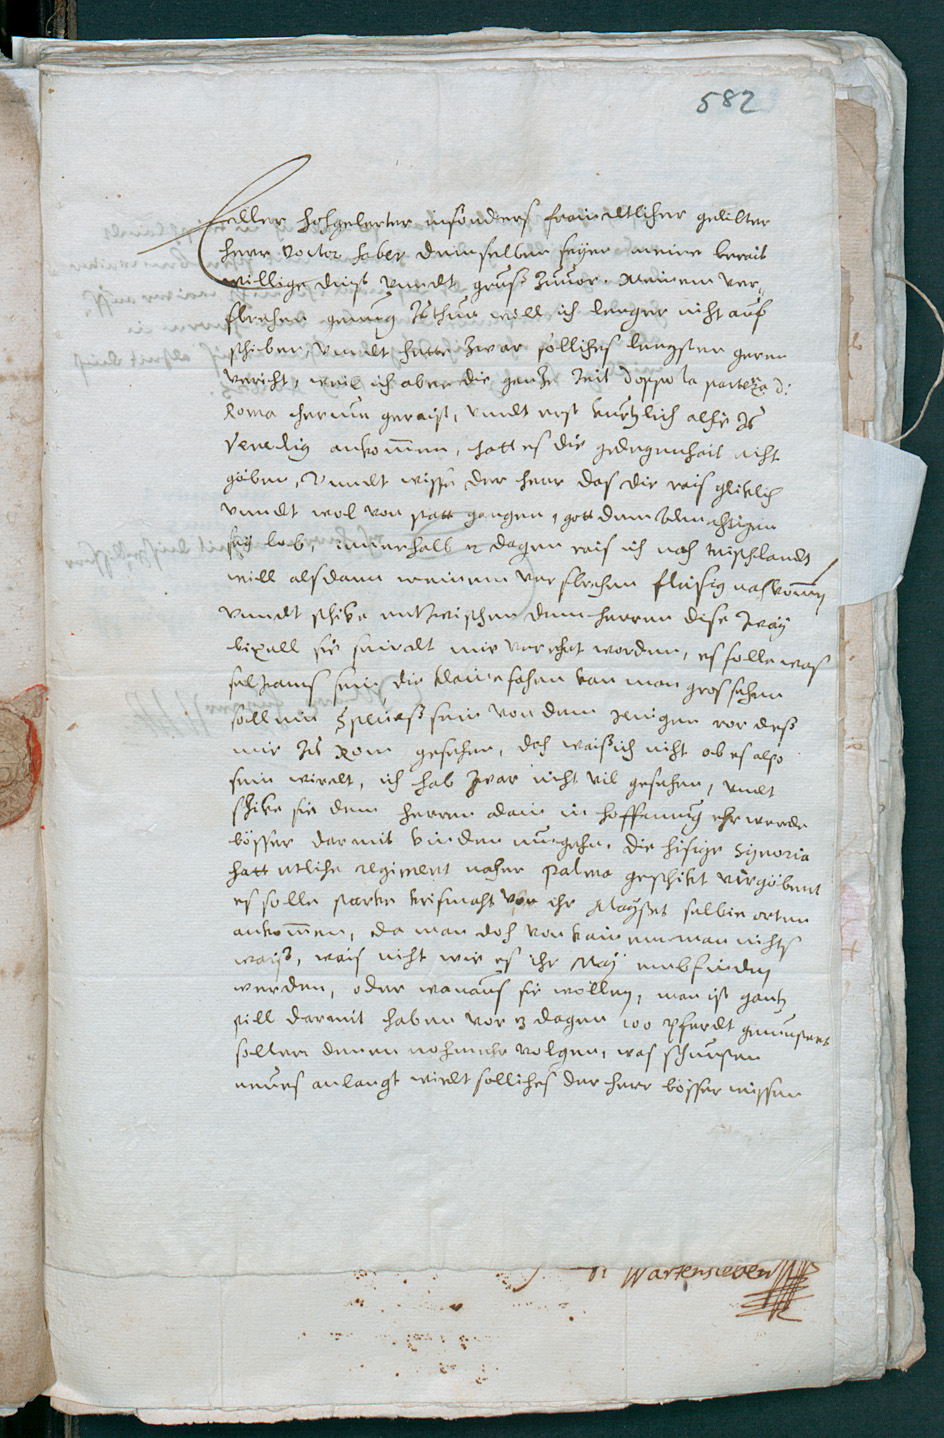 582
Edler hochgelerter insonders freundtlicher geliebter
herr doctor habe demselben seyen meine bereit
willige dinst vundt grus zuuor. Meinem ver,
sprechen genug zuthun will ich lenger nicht auf
schiben, vundt hette zwar solliches lengsten geren
vericht, weil ich aber die gantze zeit doppo la parteza di
Roma herum geraist, vundt erst kurtzlich alhie zu
Venedig ankommen, hatt es die gelegenhait nicht
göben, vundt wisse der herr das die rais gliklich
vundt wol von statt gangen, gott dem Almechtigen
sey lob, innerhalb dagen rais ich nach teischlandt
will alsdann meinem versprechen fleisig nachkommen
vundt schike entzwischen dem herren dise zway
sie seindt mir verehrt worden, es solle was
selzams sein die klaine sachen kan man gros sehen
soll ein sein von dem jenigen vor des
mir zu Rom gesehen, doch waiß ich nicht ob es also
sein wirdt, ich hab zwar nicht vil gesehen, vndt
schike sie dem herren allein in hoffnung ehr werde
bösser darmit kinden vmgehn. die hisige Signoria
hatt etliche regiment naher Palma geschikt vürgöbent
es solle starke kriksmacht von ihr Mayset selbie orten
ankommen, da man doch von kainem man nichts
waiß, weis nicht wie es ihr May embfinden
werden, oder wanaus sie wöllen, man ist gantz
still darmit haben vor dagen 100 pferdt gemustert
sollen denen noch mehr volgen, was schunsten
neues anlangt wirdt solliches der herr bösser wissen
Wartensleben